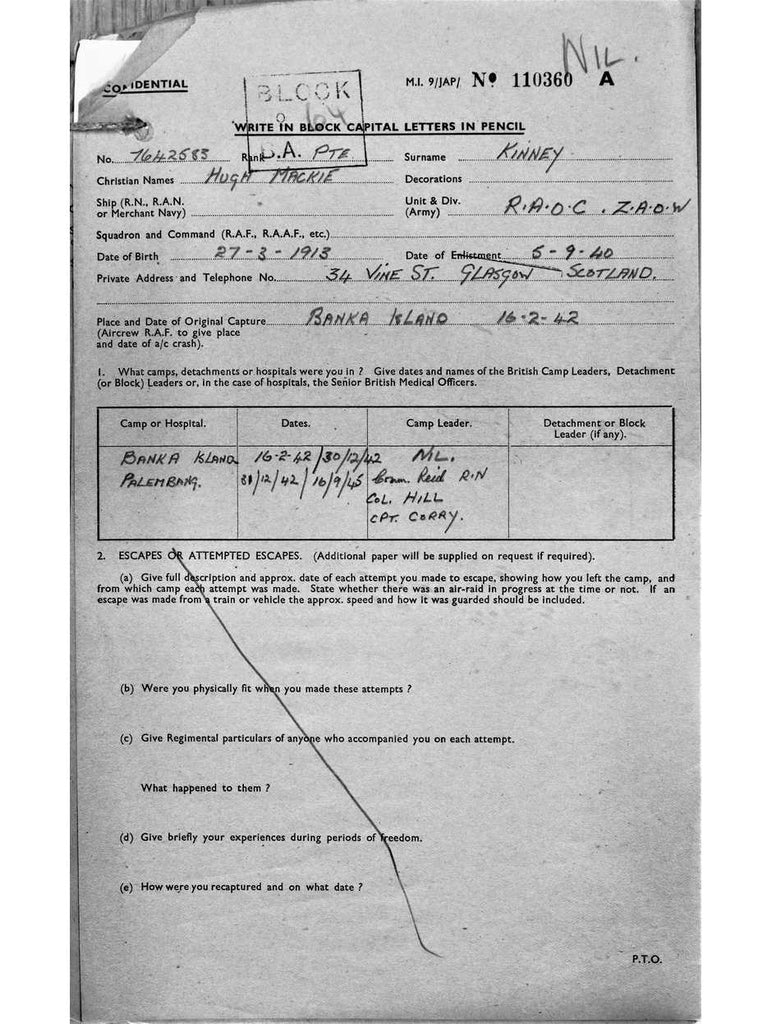 NIL.
CONFIDENTIAL
M.I. 9/JAP/ Nº 110360 A
BLOCK
WRITE IN BLOCK CAPITAL LETTERS IN PENCIL
No. 7642583 Rank B.A. PTE Surname KINNEY
Christian Names HUGH MACKIE Decorations
Ship (R.N., R.A.N. or Merchant Navy) Unit & Div. (Army) R.A.O.C. Z.A.O.W
Squadron and Command (R.A.F., R.A.A.F., etc.)
Date of Birth 27-3-1913 Date of Enlistment 5-9-40
Private Address and Telephone No. 34 VINE ST. GLASGOW SCOTLAND.
Place and Date of Original Capture BANKA ISLAND 16-2-42
(Aircrew R.A.F. to give place
and date of a/c crash).
1. What camps, detachments or hospitals were you in ? Give dates and names of the British Camp Leaders, Detachment
(or Block) Leaders or, in the case of hospitals, the Senior British Medical Officers.
Camp or Hospital. Dates. Camp Leader. Detachment or Block Leader (if any).
BANKA ISLAND 16-2-42/30/12/42 NIL.
PALEMBANG. 30/12/42/16/9/45 Comm. Reid R.N
COL. HILL
CPT. CORRY.
2. ESCAPES OR ATTEMPTED ESCAPES. (Additional paper will be supplied on request if required).
(a) Give full description and approx. date of each attempt you made to escape, showing how you left the camp, and
from which camp each attempt was made. State whether there was an air-raid in progress at the time or not. If an
escape was made from a train or vehicle the approx. speed and how it was guarded should be included.
(b) Were you physically fit when you made these attempts ?
(c) Give Regimental particulars of anyone who accompanied you on each attempt.
What happened to them ?
(d) Give briefly your experiences during periods of freedom.
(e) How were you recaptured and on what date ?
P.T.O.